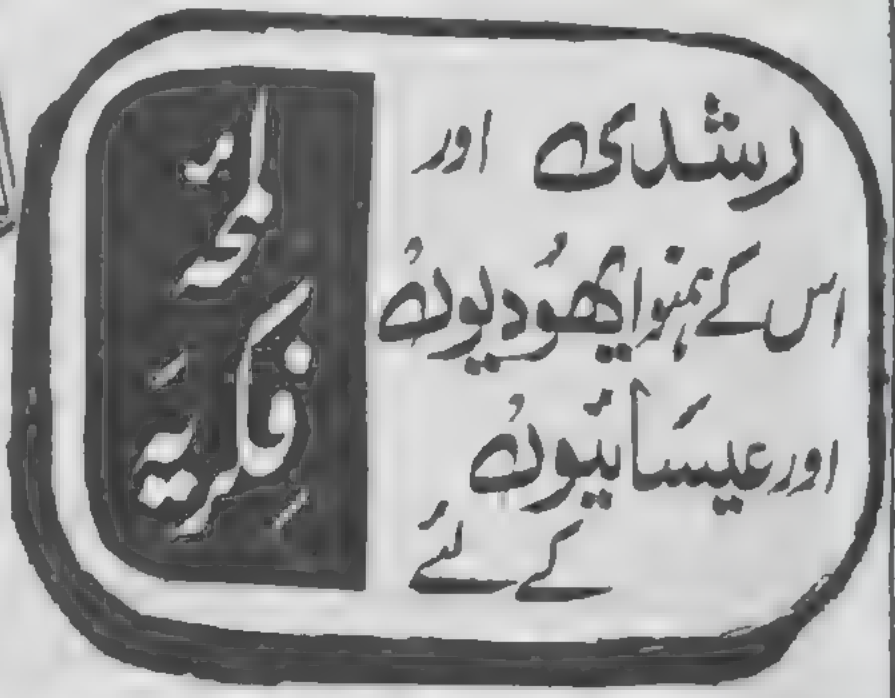 رشدی اور
اس کے ہمنوا یھُودیوں
اور عیسَائیوں
کے لئے
لمحہ
فکریہ